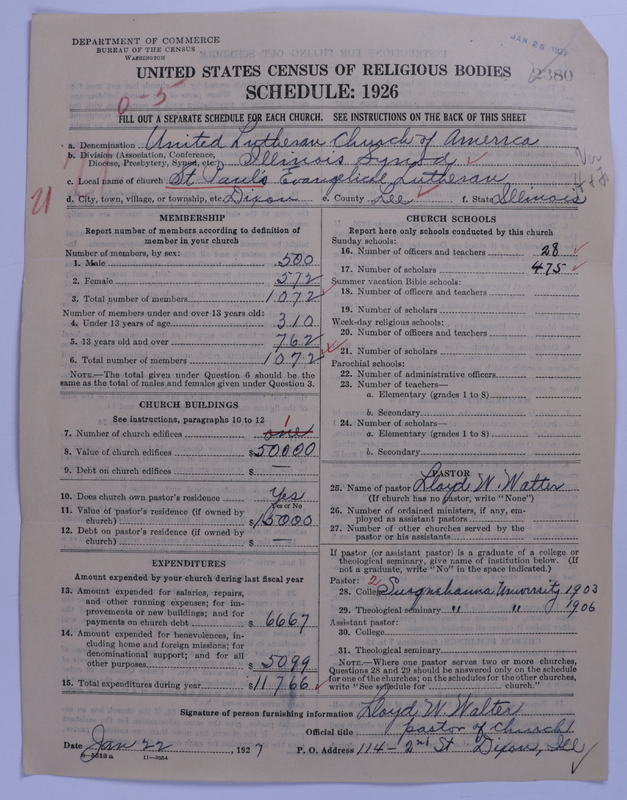 DEPARTMENT OF COMMERCE
BUREAU OF THE CENSUS
WASHINGTON
JAN 26 1927
2380
UNITED STATES CENSUS OF RELIGIOUS BODIES
SCHEDULE: 1926
0-5
FILL OUT A SEPARATE SCHEDULE FOR EACH CHURCH. SEE INSTRUCTIONS ON THE BACK OF THIS SHEET
a. Denomination United Lutheran Church of America
b. Division (Association, Conference, Diocese, Presbytery, Synod, etc.) Illinois Synod
c. Local name of church St Paul's Evangelical Lutheran
d. City, town, village, or township, etc. Dixon e. County Lee f. State Illinois
21
MEMBERSHIP
Report number of members according to definition of
member in your church
Number of members, by sex:
1. Male 500
2. Female 572
3. Total number of members 1072
Number of members under and over 13 years old:
4. Under 13 years of age 310
5. 13 years old and over 762
6. Total number of members 1072
NOTE.—The total given under Question 6 should be the
same as the total of males and females given under Question 3.
CHURCH BUILDINGS
See instructions, paragraphs 10 to 12
7. Number of church edifices one 1
8. Value of church edifices $50000
9. Debt on church edifices $ —
10. Does church own pastor's residence Yes
Yes or No
11. Value of pastor's residence (if owned by
church) $15000
12. Debt on pastor's residence (if owned by
church) $ —
EXPENDITURES
Amount expended by your church during last fiscal year
13. Amount expended for salaries, repairs,
and other running expenses; for im-
provements or new buildings; and for
payments on church debt $ 6667
14. Amount expended for benevolences, in-
cluding home and foreign missions; for
denominational support; and for all
other purposes $ 5099
15. Total expenditures during year $11766
CHURCH SCHOOLS
Report here only schools conducted by this church
Sunday schools:
16. Number of officers and teachers 28
17. Number of scholars 475
Summer vacation Bible schools:
18. Number of officers and teachers
19. Number of scholars
Week-day religious schools:
20. Number of officers and teachers
21. Number of scholars
Parochial schools:
22. Number of administrative officers
23. Number of teachers—
a. Elementary (grades 1 to 8)
b. Secondary
24. Number of scholars—
a. Elementary (grades 1 to 8)
b. Secondary
PASTOR
25. Name of pastor Lloyd W. Walter
(If church has no pastor, write "None")
26. Number of ordained ministers, if any, em-
ployed as assistant pastors
27. Number of other churches served by the
pastor or his assistants
If pastor (or assistant pastor) is a graduate of a college or
theological seminary, give name of institution below. (If
not a graduate, write "No" in the space indicated.)
Pastor: 2
28. College Susquehanna University 1903
29. Theological seminary " " 1906
Assistant pastor:
30. College
31. Theological seminary
NOTE.—Where one pastor serves two or more churches,
Questions 28 and 29 should be answered only on the schedule
for one of the churches; on the schedules for the other churches,
write "See schedule for church."
Signature of person furnishing information Lloyd W. Walter
Official title pastor of church
Date Jan 22 1927 P. O. Address 114 - 2nd St Dixon, Ill
11-9554